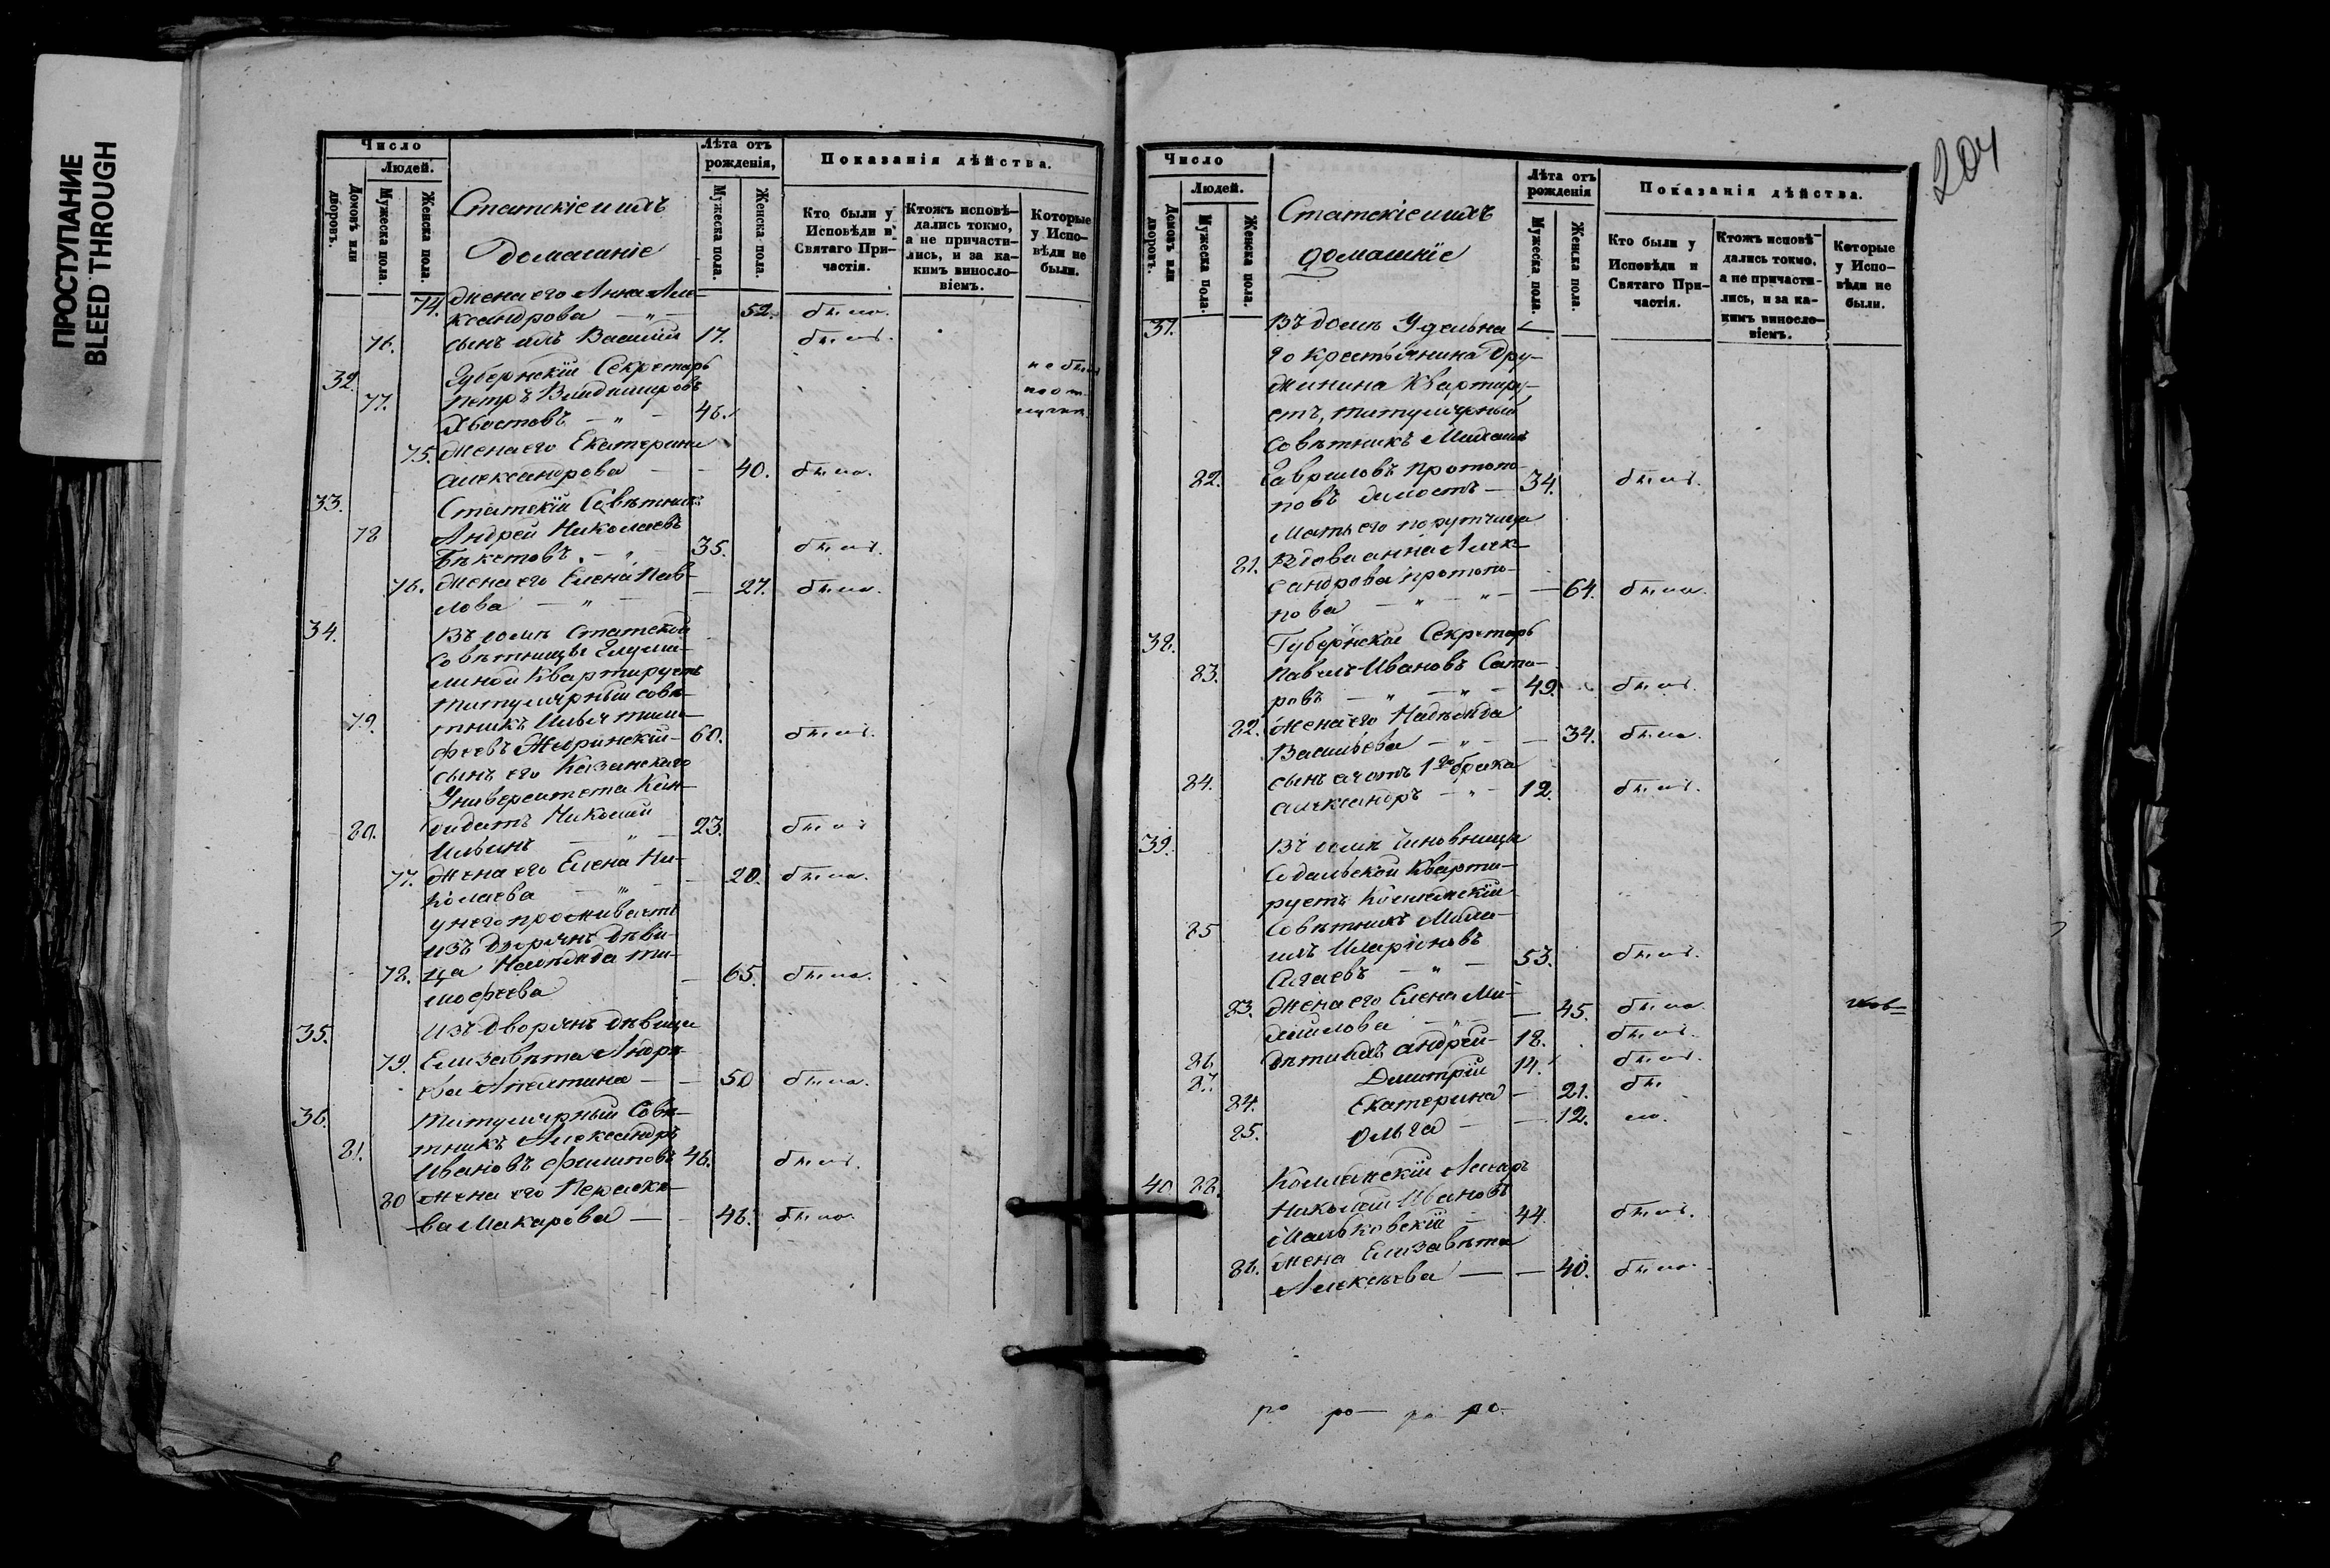 ПРОСТУПАНИЕ
BLEED THROUGH
Число
Людей.
Домовъ или дворовъ.
Мужеска пола.
Женска пола.
Статскіе и ихъ
домашніе
Лѣта отъ рожденія,
Мужеска пола.
Женска пола.
Показанія дѣйства.
Кто были у Исповѣди и Святаго Причастія.
Ктожъ исповѣдались токмо, а не причастились, и за какимъ винословіемъ.
Которые у Исповѣди не были.
74. Жена его Анна Але-
ксандрова — „ — 52. была.
76. сынъ ихъ Василій 17. былъ.
32. Губернскій Секретарь не былъ
77. Петръ Владимировъ по от
Хвостовъ — „ — 46.
75. Жена его Екатерина
Александрова — — 40. была.
33. Статскій Совѣтникъ
78 Андрей Николаевъ
Бекетовъ. — „ — 35. былъ.
76. Жена его Елена Пав-
лова — „ — — 27. была.
34. Въ домѣ Статской
Совѣтницы
линой Квартируетъ
Титулярный совѣ-
79. тникъ Илья Тимо-
феевъ Жедринскій — 60. былъ.
сынъ его Казанскаго
Университета Кан-
80. дидатъ Николай
Ильинъ — „ — 23. былъ
77. Жена его Елена Ни-
колаева — „ — 20. была.
у него проживаетъ
изъ Дворянъ дѣви-
78. ца Надежда Ти-
мофеева — 65. была.
35. Изъ Дворянъ дѣвица
79. Елизавета Андре-
ева — — 50 была.
36. Титулярный Совѣ-
81. тникъ Александръ
Ивановъ Филиповъ 46. былъ.
80 Жена его Параске-
ва Макарова — — 46. была.
204
Число
Людей.
Домовъ или дворовъ.
Мужеска пола.
Женска пола.
Статскіе и ихъ
домашніе
Лѣта отъ рожденія
Мужеска пола.
Женска пола.
Показанія дѣйства.
Кто были у Исповѣди и Святаго Причастія.
Ктожъ исповѣдались токмо, а не причастились, и за какимъ винословіемъ.
Которые у Исповѣди не были.
37. Въ домѣ Удельна
го крестьянина Дру-
жинина Квартиру-
етъ, титулярный
Совѣтникъ Михаилъ
82. Гавриловъ Протопо-
повъ холостъ — 34. былъ.
Мать его порутчица
81. Вдова Анна Алек-
сандрова Протопо-
пова — „ — „ — — 64. была.
38. Губернскій Секретарь
83. Павелъ Ивановъ Сата-
ровъ — „ — „ — 49. былъ.
82. Жена его Надежда
Васильева — „ — — 34. была.
84. сынъ его отъ 1го брака
Александръ — „ — 12. былъ.
39. Въ домѣ Чиновницы
Содальской Кварти-
руетъ Коллежскій
85 Совѣтникъ Миха-
илъ Иларіоновъ
— „ — 53. былъ.
83. Жена его Елена Ми-
хайлова — „ — — 45. была.
86 Дѣти ихъ Андрей — 18. былъ.
87. Димитрій 14. былъ.
84. Екатерина — 21. бы
85. Ольга — — 12. ла.
40. 88. Коллежскій Лекарь
Николай Ивановъ
Мальковскій — 44. былъ.
86. Жена Елизавета
Алексеева — — 40. была.
ро ро— ро ро